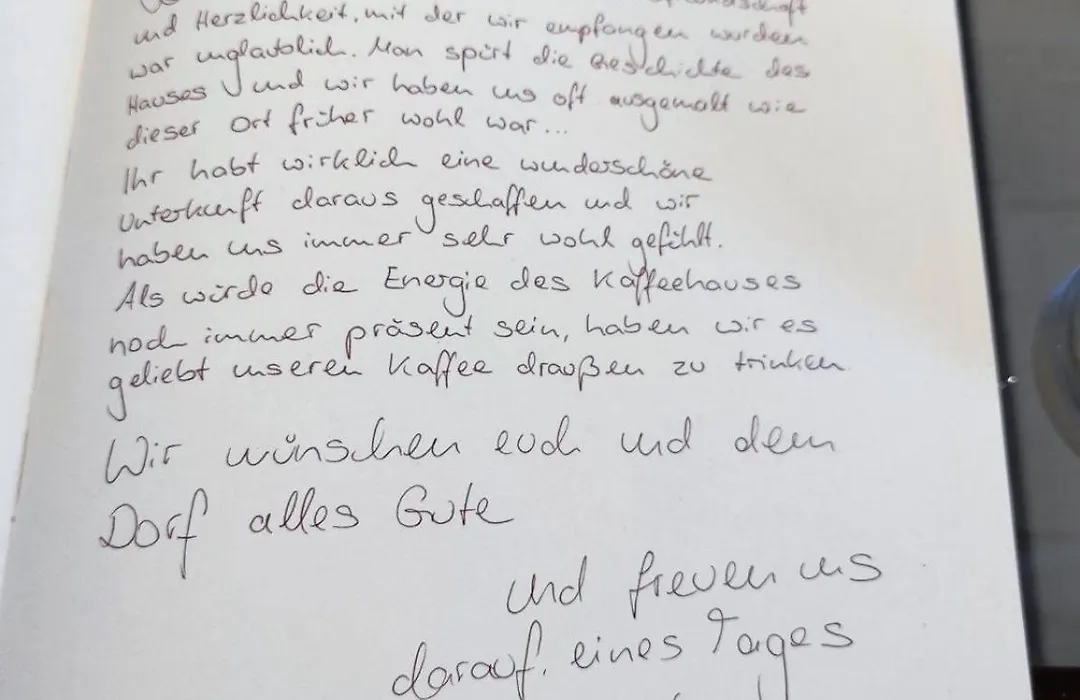 und Herzlichkeit, mit der wir empfangen wurden
war unglaublich. Man spürt die Geschichte des
Hauses und wir haben uns oft ausgemalt wie
dieser Ort früher wohl war...
Ihr habt wirklich eine wunderschöne
Unterkunft daraus geschaffen und wir
haben uns immer sehr wohl gefühlt.
Als würde die Energie des Kaffeehauses
noch immer präsent sein, haben wir es
geliebt unseren Kaffee draußen zu trinken
Wir wünschen euch und dem
Dorf alles Gute
und freuen uns
darauf, eines Tages